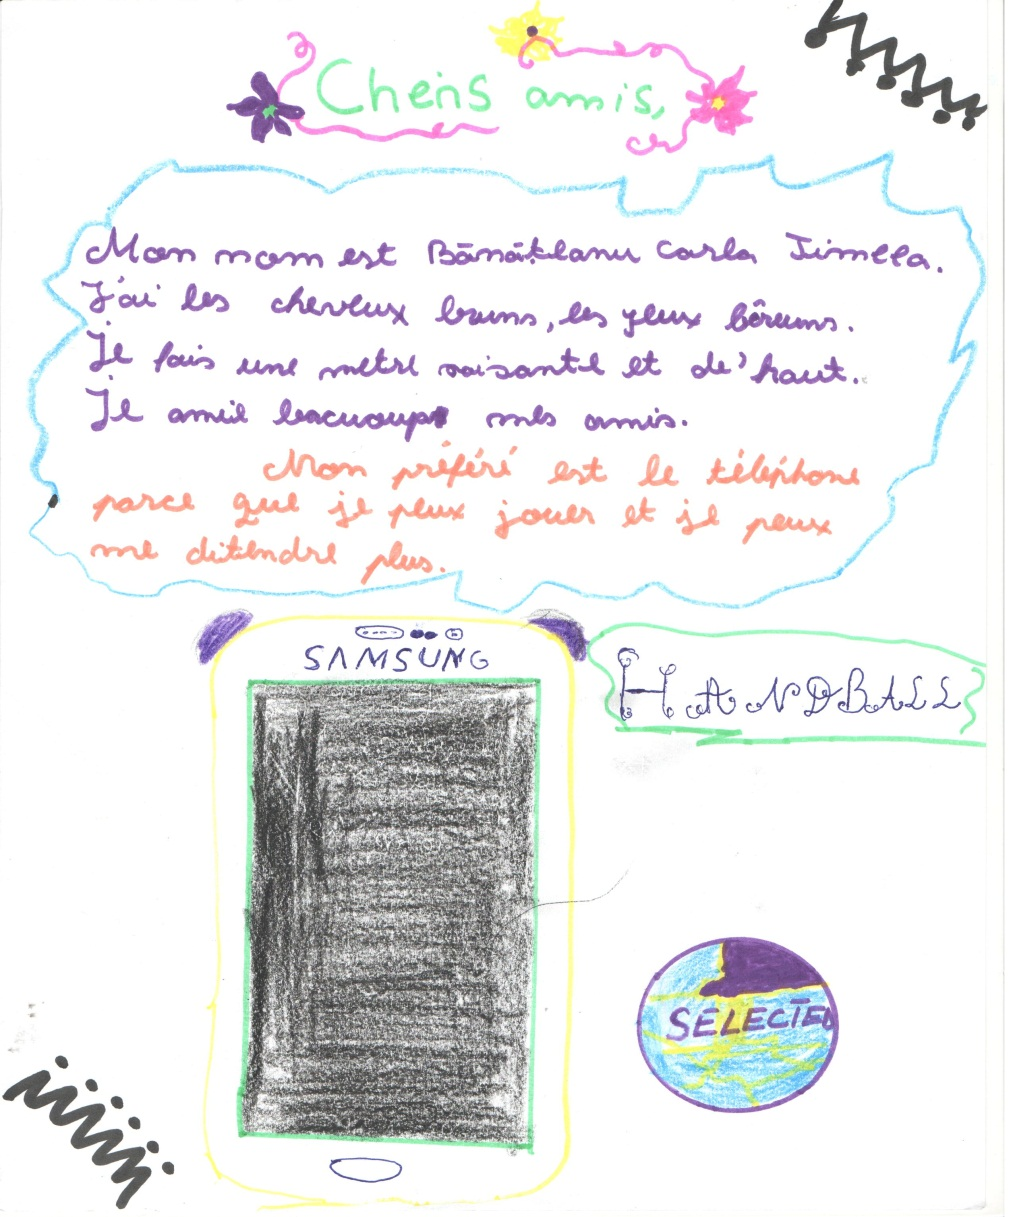 Chers amis,
Mon nom est Bănățeanu Carla Jimella.
J'ai les cheveux bruns, les yeux bêruns.
Je fais une mètre soisante et de'haut.
Je ameil beacuoup mes amis.
Mon préféré est le téléphone
parce que je peux jouer et je peux
me ditendre plus.
SAMSUNG
HANDBALL
SELECTED